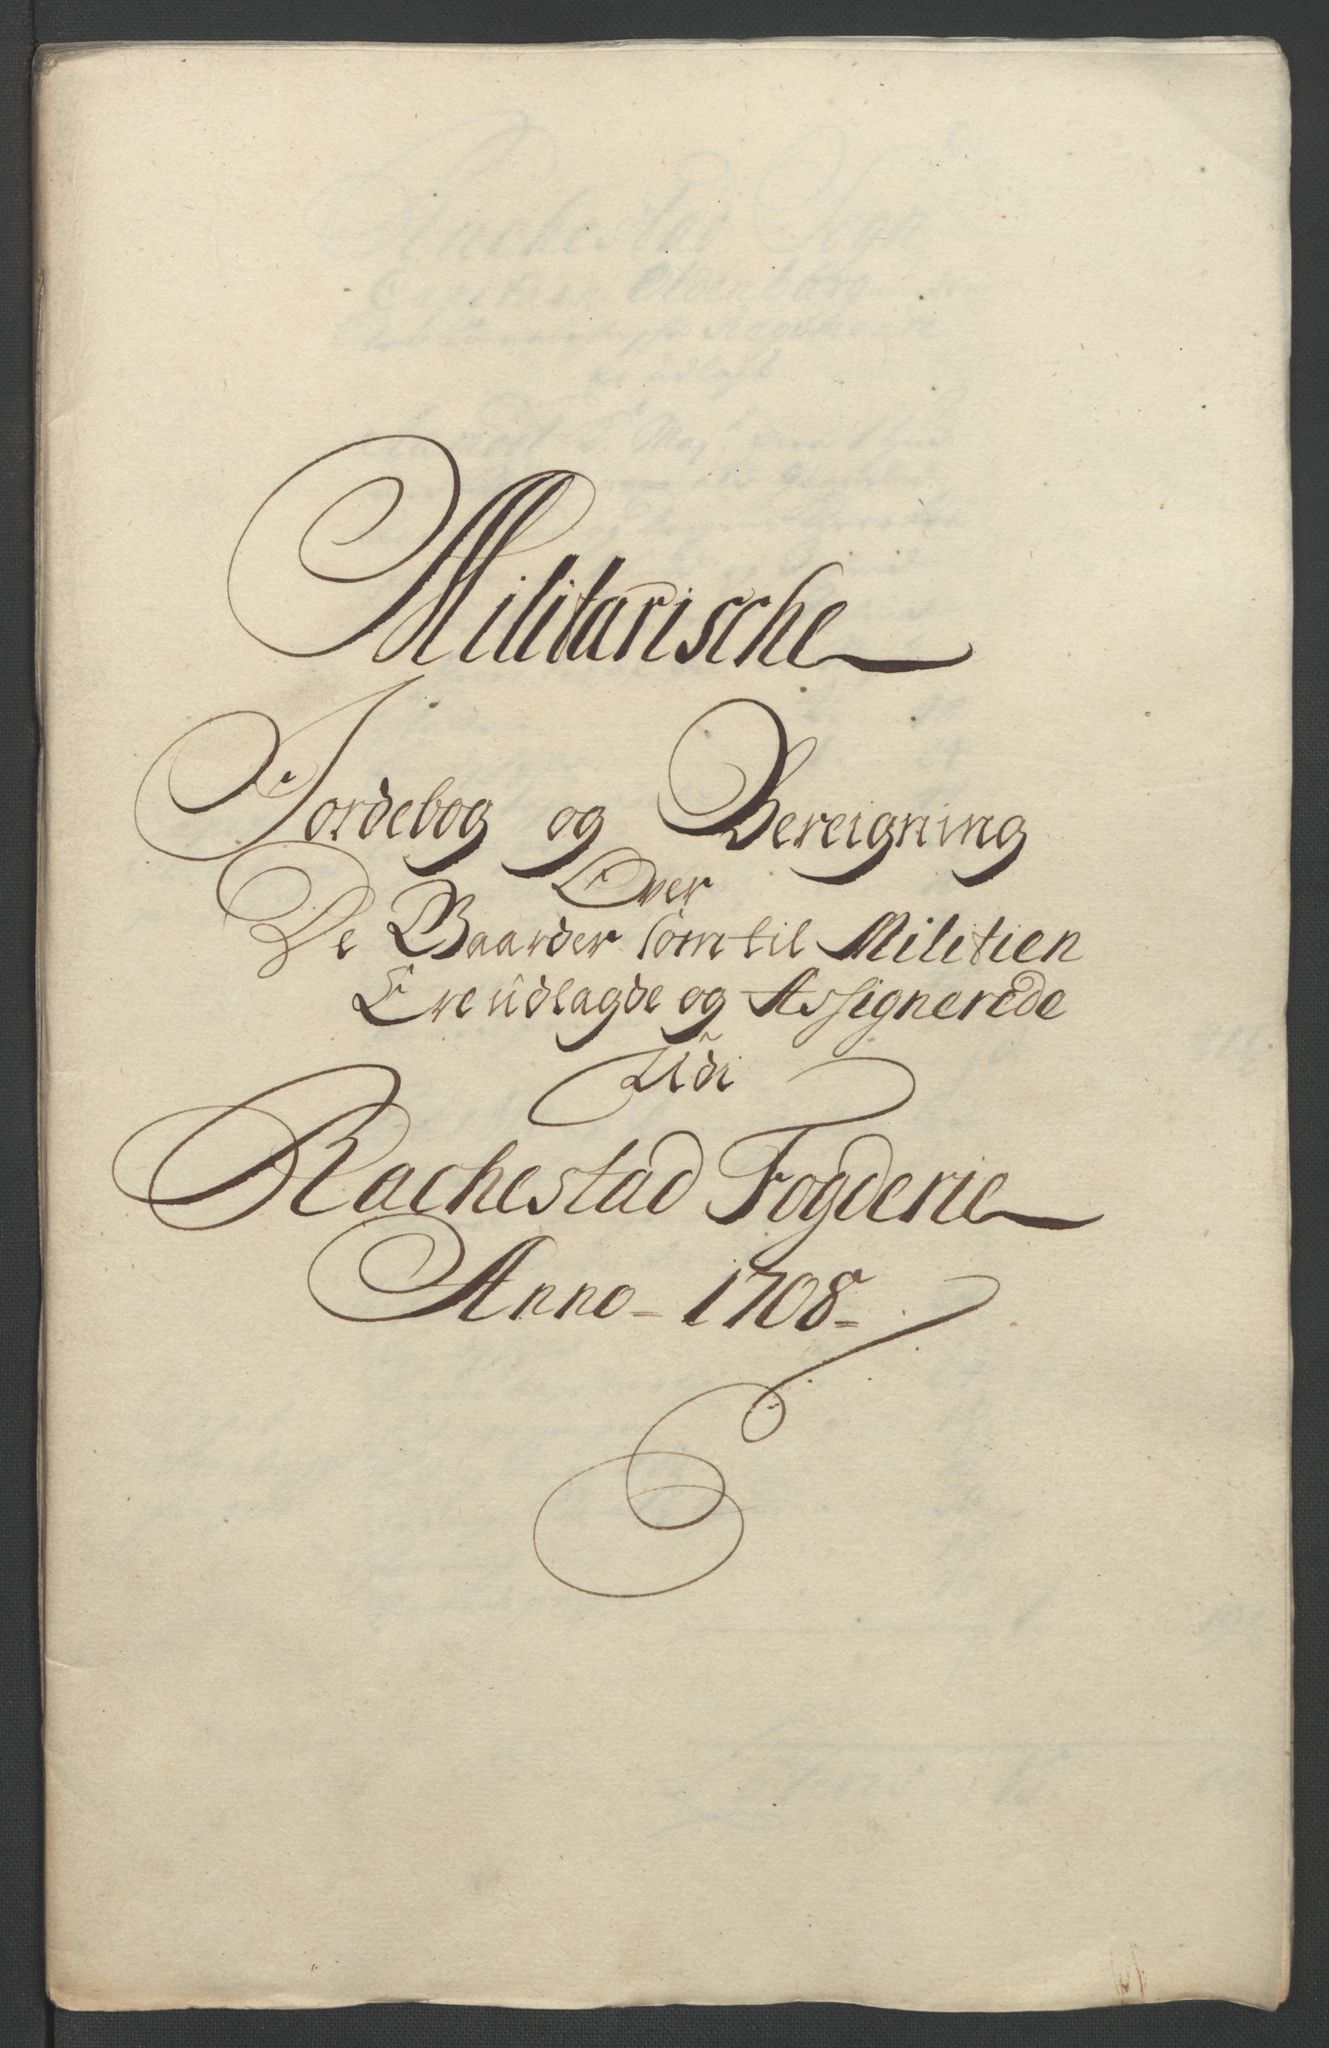 Militarische
Jordebog og Bereigning
Over
De Gaarder som til Militien
Ere üdlagde og Assignerede
Udi
Rachestad Fogderie
Anno 1708